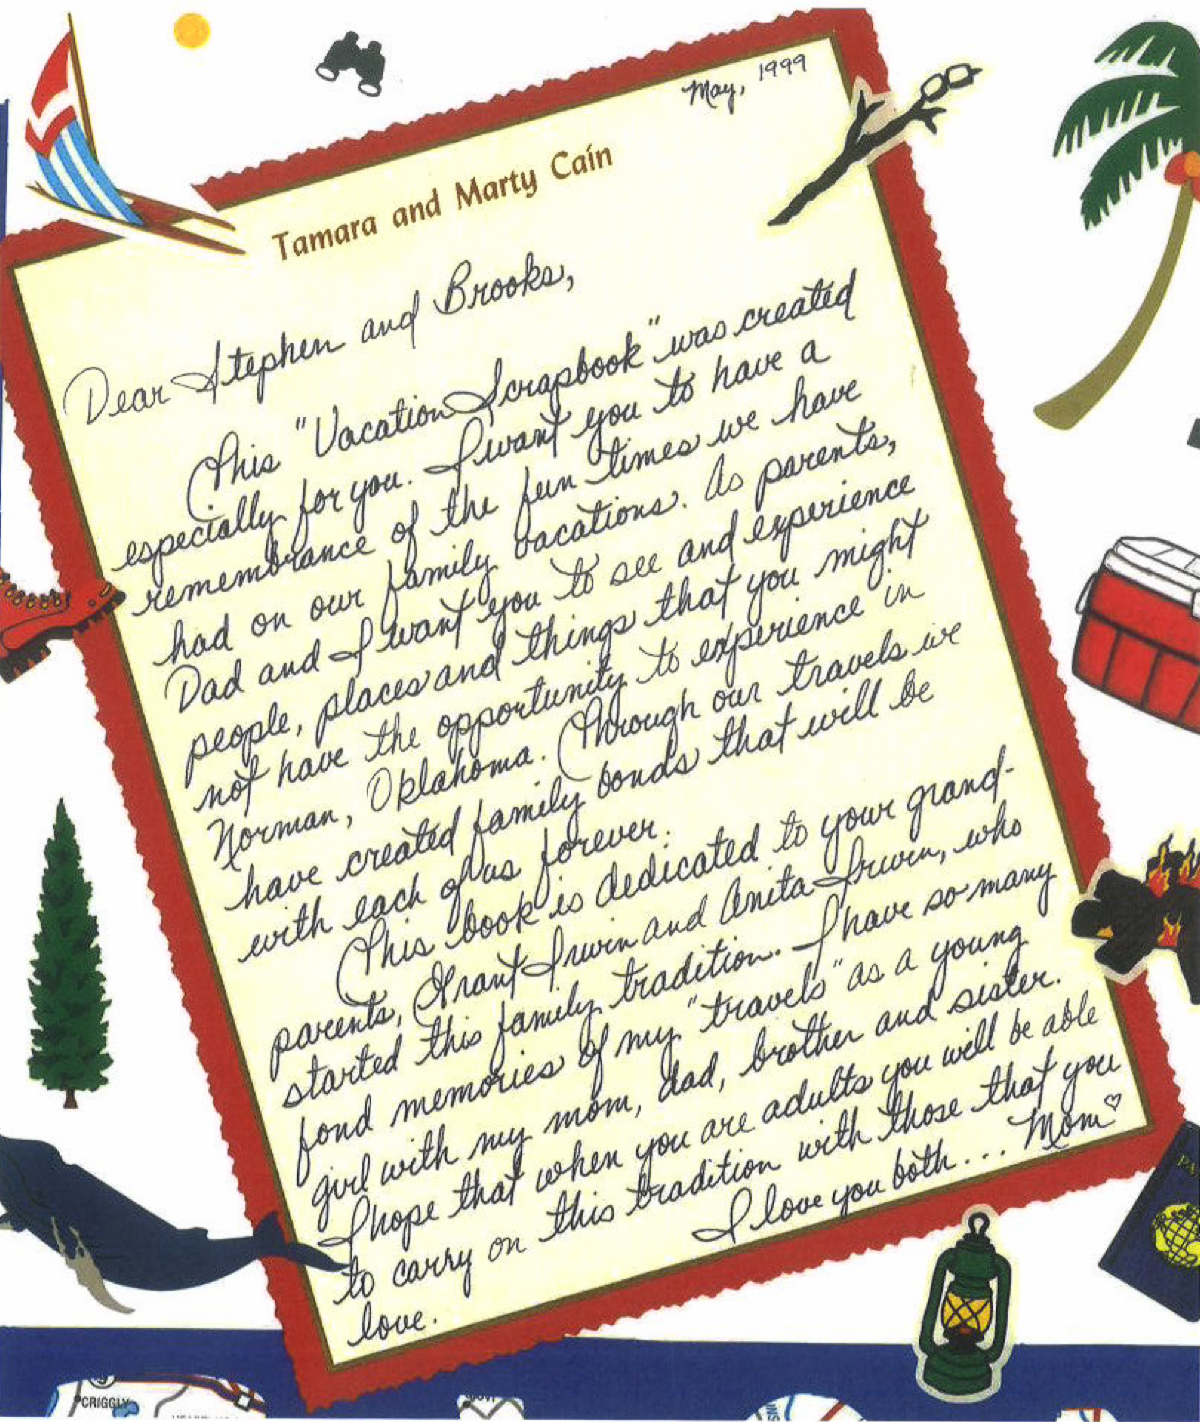 May, 1999
Tamara and Marty Cain
Dear Stephen and Brooks,
This "Vacation Scrapbook" was created
especially for you. I want you to have a
remembrance of the fun times we have
had on our family vacations. As parents,
Dad and I want you to see and experience
people, places and things that you might
not have the opportunity to experience in
Norman, Oklahoma. Through our travels we
have created family bonds that will be
with each of us forever.
This book is dedicated to your grand-
parents, Grant Irwin and Anita Irwin, who
started this family tradition. I have so many
fond memories of my "travels" as a young
girl with my mom, dad, brother and sister.
I hope that when you are adults you will be able
to carry on this tradition with those that you
love.
I love you both... Mom♡
CRIGGLY